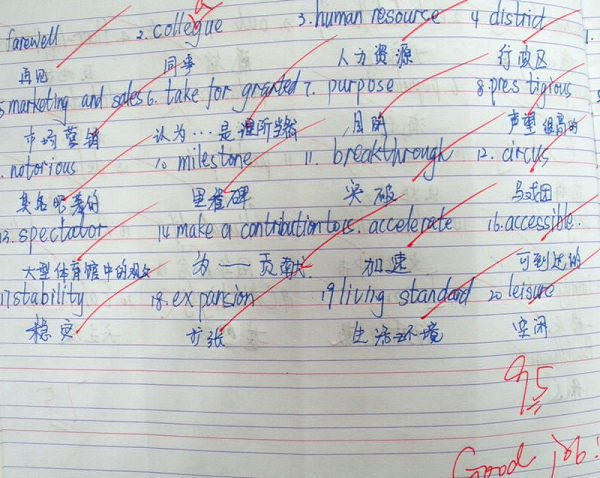 farewell 2. collegue a 3. human resource 4 district 1.
再见 同事 人力资源 行政区
5 marketing and sales 6. take for granted 7. purpose 8. prestigious
市场营销 认为…是理所当然 目的 声望很高的
. notorious 10 milestone 11. breakthrough 12. circus
臭名昭著的 里程碑 突破 马戏团
13. spectator 14 make a contribution to 15. accelerate 16. accessible.
大型体育馆中的观众 为一一贡献. 加速 可到达的
17 stability 18. expansion 19 living standard 20 leisure
稳定 扩张 生活环境 空闲
95
Good job!